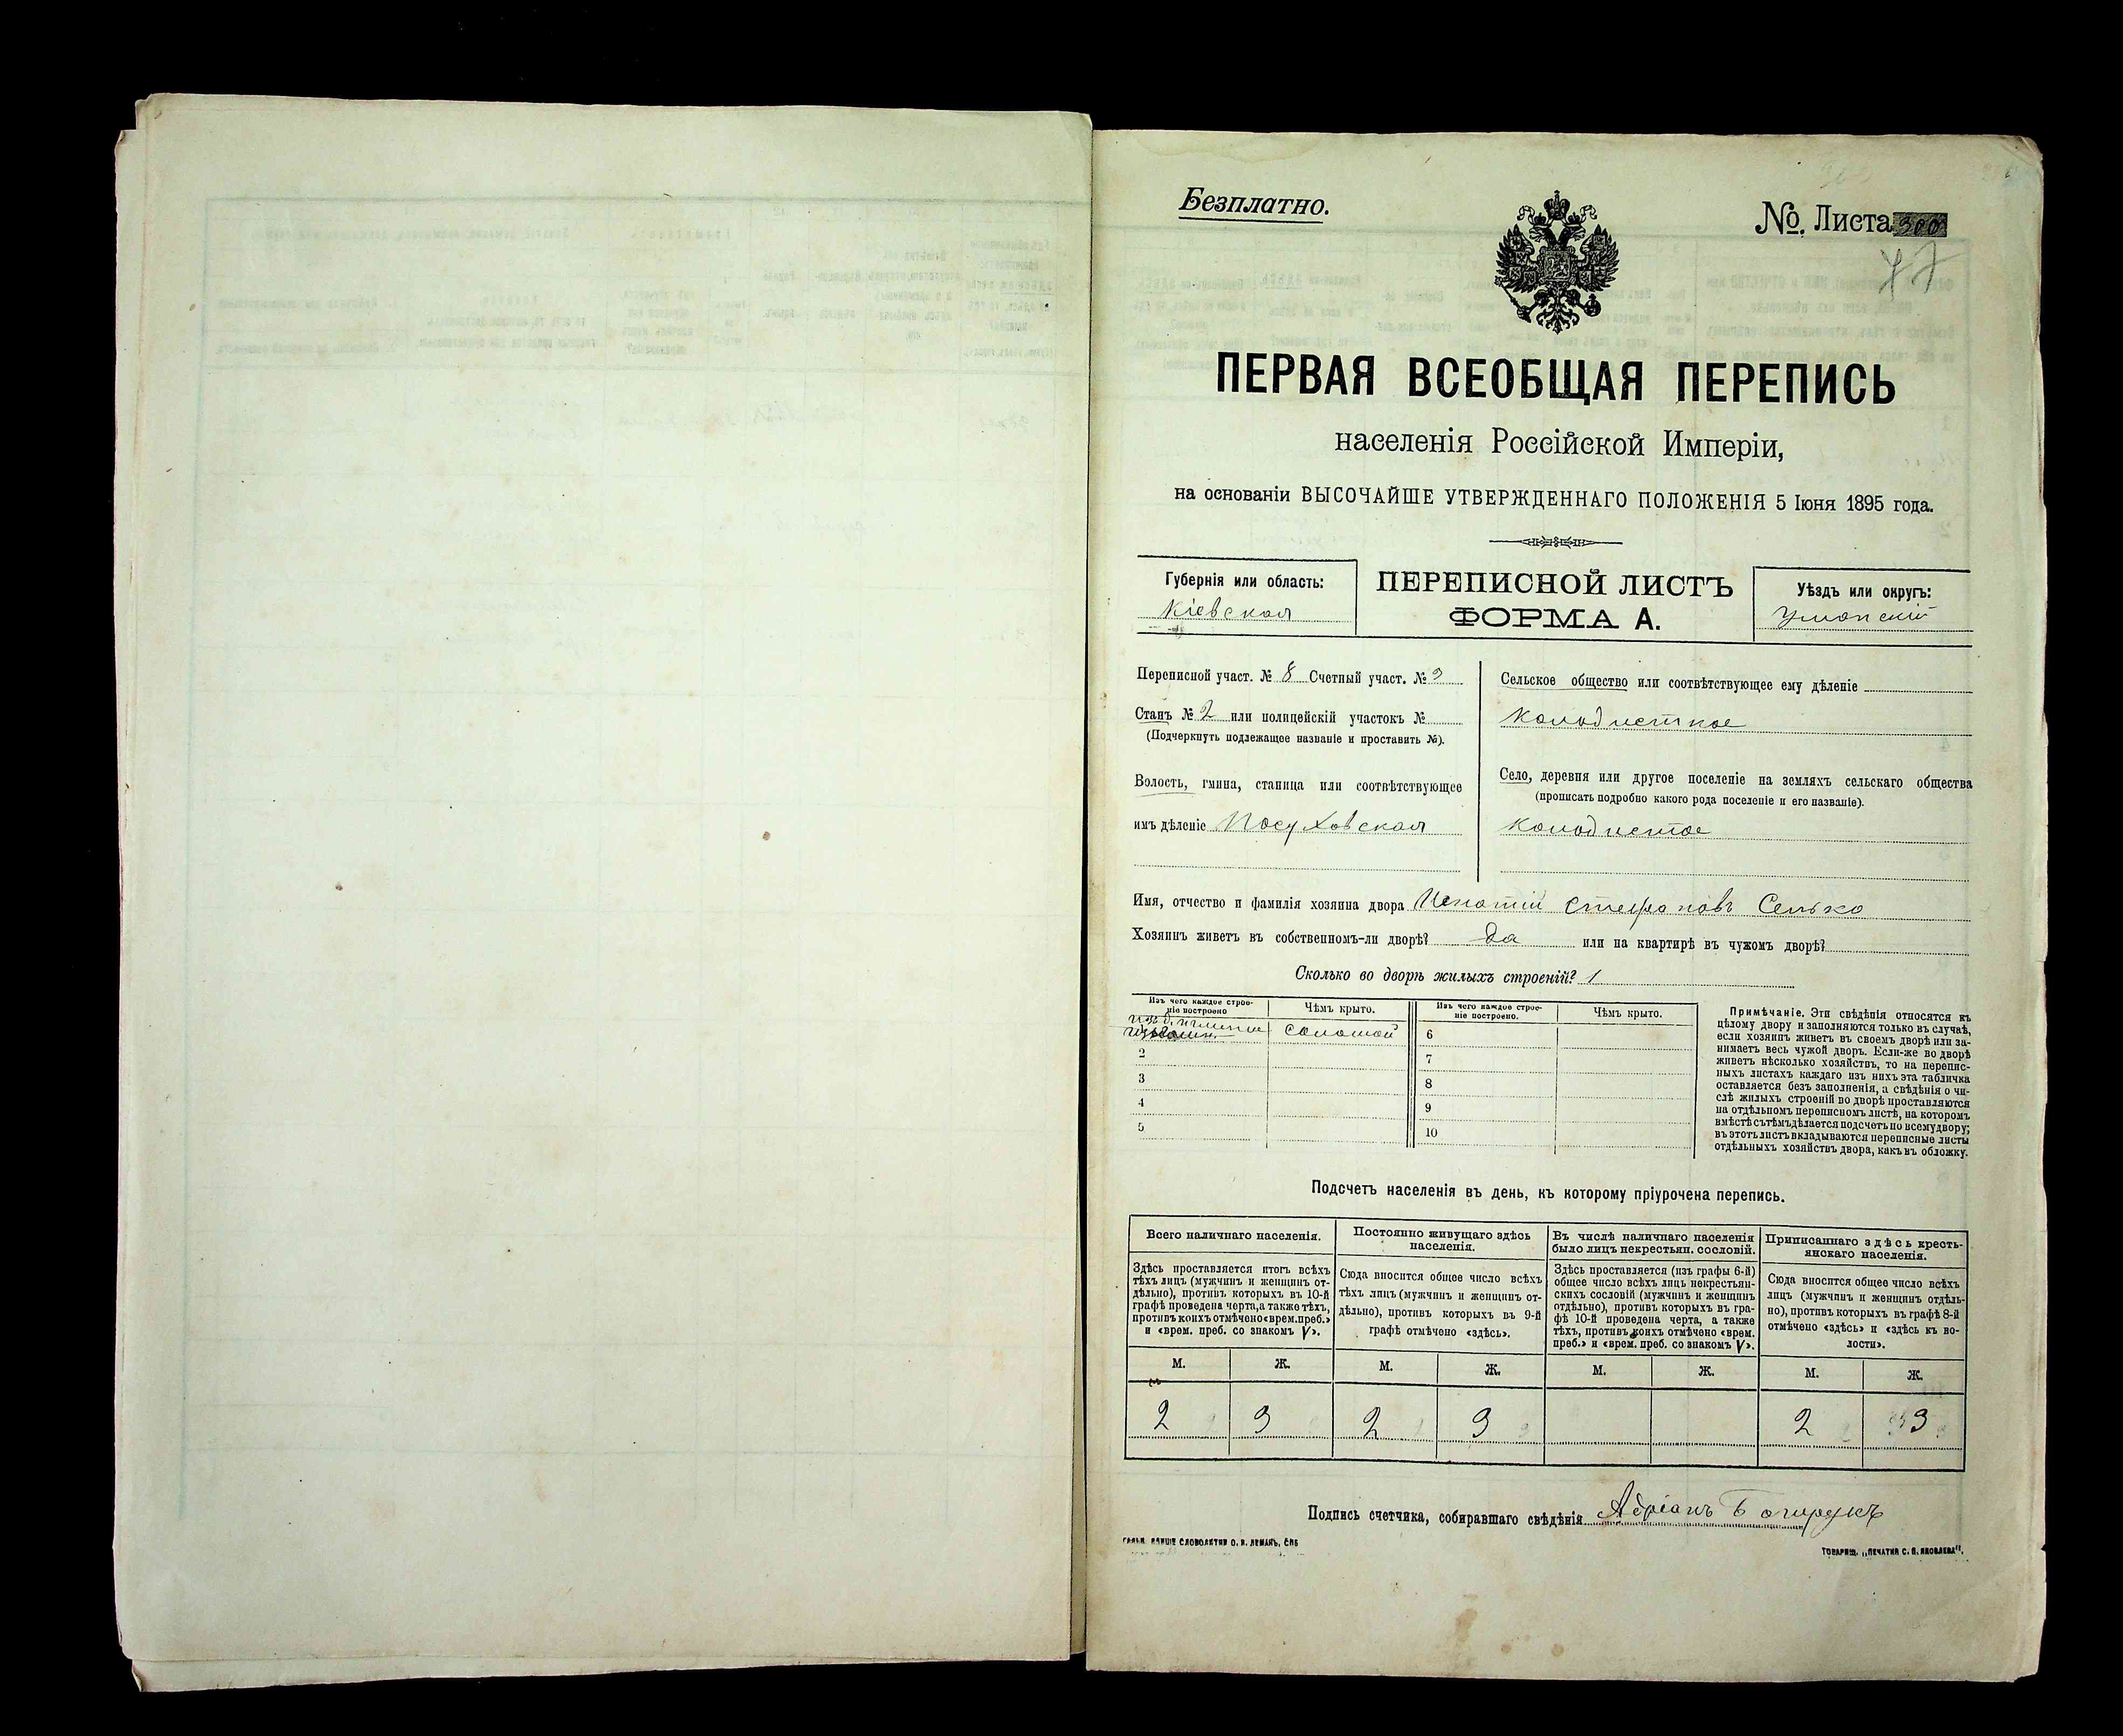 Безплатно.
№ Листа 300
47
ПЕРВАЯ ВСЕОБЩАЯ ПЕРЕПИСЬ
населенія Россійской Имперіи,
на основаніи ВЫСОЧАЙШЕ УТВЕРЖДЕННАГО ПОЛОЖЕНІЯ 5 Іюня 1895 года.
Губернія или область:
Кіевская
ПЕРЕПИСНОЙ ЛИСТЪ
ФОРМА А.
Уѣздъ или округъ:
Уманскій
Переписной участ. № 8 Счетный участ. № 3
Станъ № 2 или полицейскій участокъ №
(Подчеркнуть подлежащее названіе и проставить №).
Волость, гмина, станица или соотвѣтствующее
имъ дѣленіе Посуховская
Сельское общество или соотвѣтствующее ему дѣленіе
Колодисткое
Село, деревня или другое поселеніе на земляхъ сельскаго общества
(прописать подробно какого рода поселеніе и его названіе).
Колодистое
Имя, отчество и фамилія хозяина двора Игнатій Стефановъ Селько
Хозяинъ живетъ въ собственномъ-ли дворѣ? Да или на квартирѣ въ чужомъ дворѣ?
Сколько во дворѣ жилыхъ строеній? 1
Изъ чего каждое строе-
ніе построено
Чѣмъ крыто.
Изъ чего каждое строе-
ніе построено.
Чѣмъ крыто.
соломой
6
2
7
3
8
4
9
5
10
Примѣчаніе. Эти свѣдѣнія относятся къ
цѣлому двору и заполняются только въ случаѣ,
если хозяинъ живетъ въ своемъ дворѣ или за-
нимаетъ весь чужой дворъ. Если-же во дворѣ
живетъ нѣсколько хозяйствъ, то на перепис-
ныхъ листахъ каждаго изъ нихъ эта табличка
оставляется безъ заполненія, а свѣдѣнія о чи-
слѣ жилыхъ строеній во дворѣ проставляются
на отдѣльномъ переписномъ листѣ, на которомъ
вмѣстѣ съ тѣмъ дѣлается подсчетъ по всему двору;
въ этотъ листъ вкладываются переписные листы
отдѣльныхъ хозяйствъ двора, какъ въ обложку.
Подсчетъ населенія въ день, къ которому пріурочена перепись.
Всего наличнаго населенія.
Здѣсь проставляется итогъ всѣхъ
тѣхъ лицъ (мужчинъ и женщинъ от-
дѣльно), противъ которыхъ въ 10-й
графѣ проведена черта, а также тѣхъ,
противъ коихъ отмѣчено «врем. преб.»
и «врем. преб. со знакомъ V».
Постоянно живущаго здѣсь
населенія.
Сюда вносится общее число всѣхъ
тѣхъ лицъ (мужчинъ и женщинъ от-
дѣльно), противъ которыхъ въ 9-й
графѣ отмѣчено «здѣсь».
Въ числѣ наличнаго населенія
было лицъ некрестьян. сословій.
Здѣсь проставляется (изъ графы 6-й)
общее число всѣхъ лицъ некрестьян-
скихъ сословій (мужчинъ и женщинъ
отдѣльно), противъ которыхъ въ гра-
фѣ 10-й проведена черта, а также
тѣхъ, противъ коихъ отмѣчено «врем.
преб.» и «врем. преб. со знакомъ V».
Приписаннаго здѣсь кресть-
янскаго населенія.
Сюда вносится общее число всѣхъ
лицъ (мужчинъ и женщинъ отдѣль-
но), противъ которыхъ въ графѣ 8-й
отмѣчено «здѣсь» и «здѣсь къ во-
лости».
М. Ж. М. Ж. М. Ж. М. Ж.
2 3 2 3 2 3
Подпись счетчика, собиравшаго свѣдѣнія Адріанъ
СЛОВОЛИТНИ О. И. ЛЕМАНЪ, СПБ
ТОВАРИЩ. „ПЕЧАТНЯ С. П. ЯКОВЛЕВА".